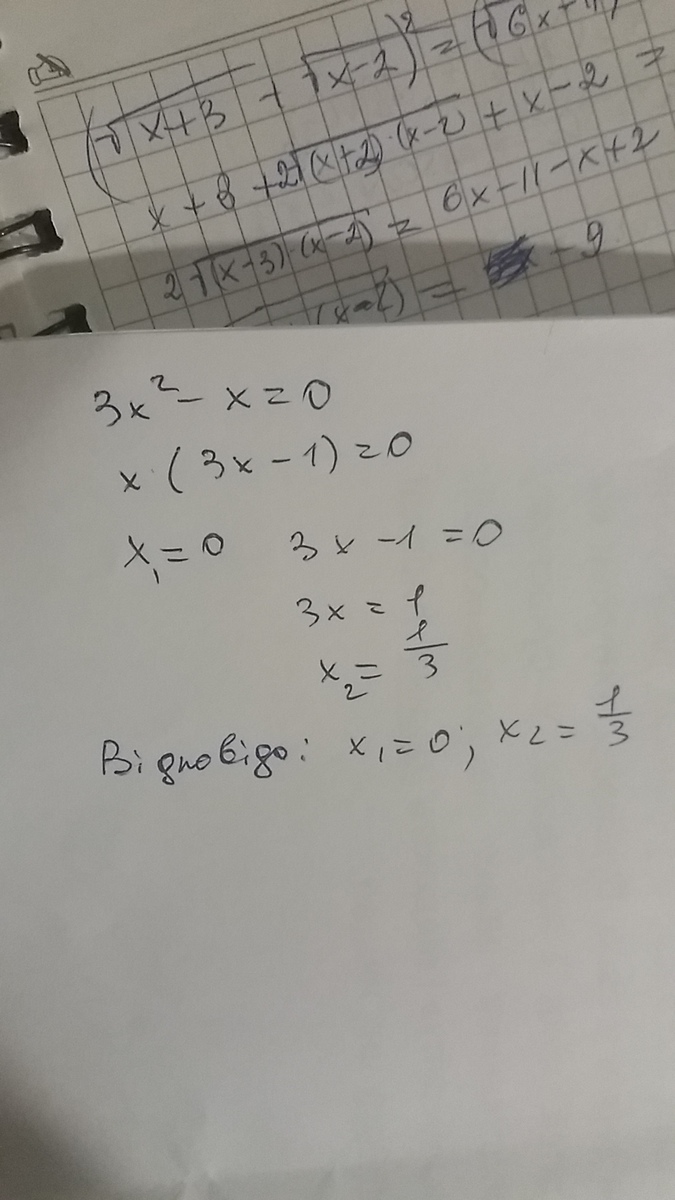 (√x+3 + √x-2)² = (√6x-11)
x + 3 + 2√(x+2)·(x-2) + x - 2 =
2√(x-3)·(x-2) = 6x-11-x+2
(x-2) = - 9
3x² - x = 0
x·(3x-1)=0
x₁=0 3x-1=0
3x = 1
x₂= 1/3
Відповідь: x₁=0; x₂= 1/3